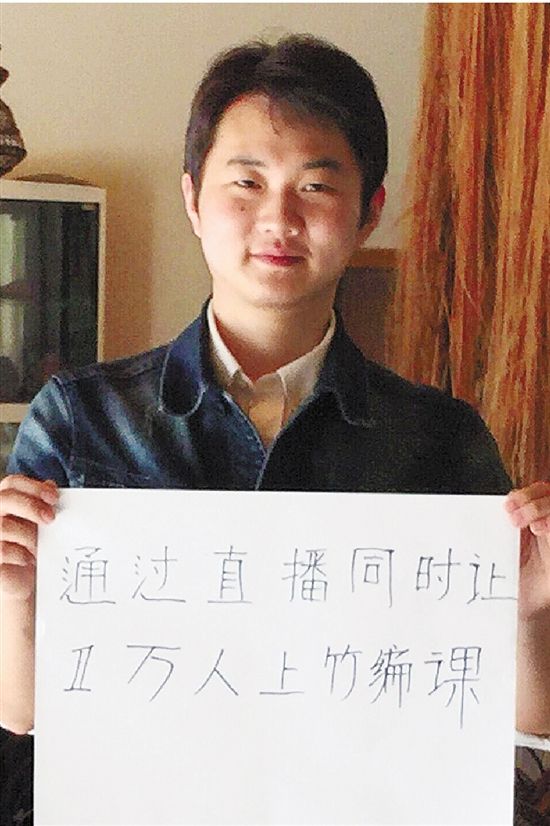 通过直播同时让
1万人上竹编课